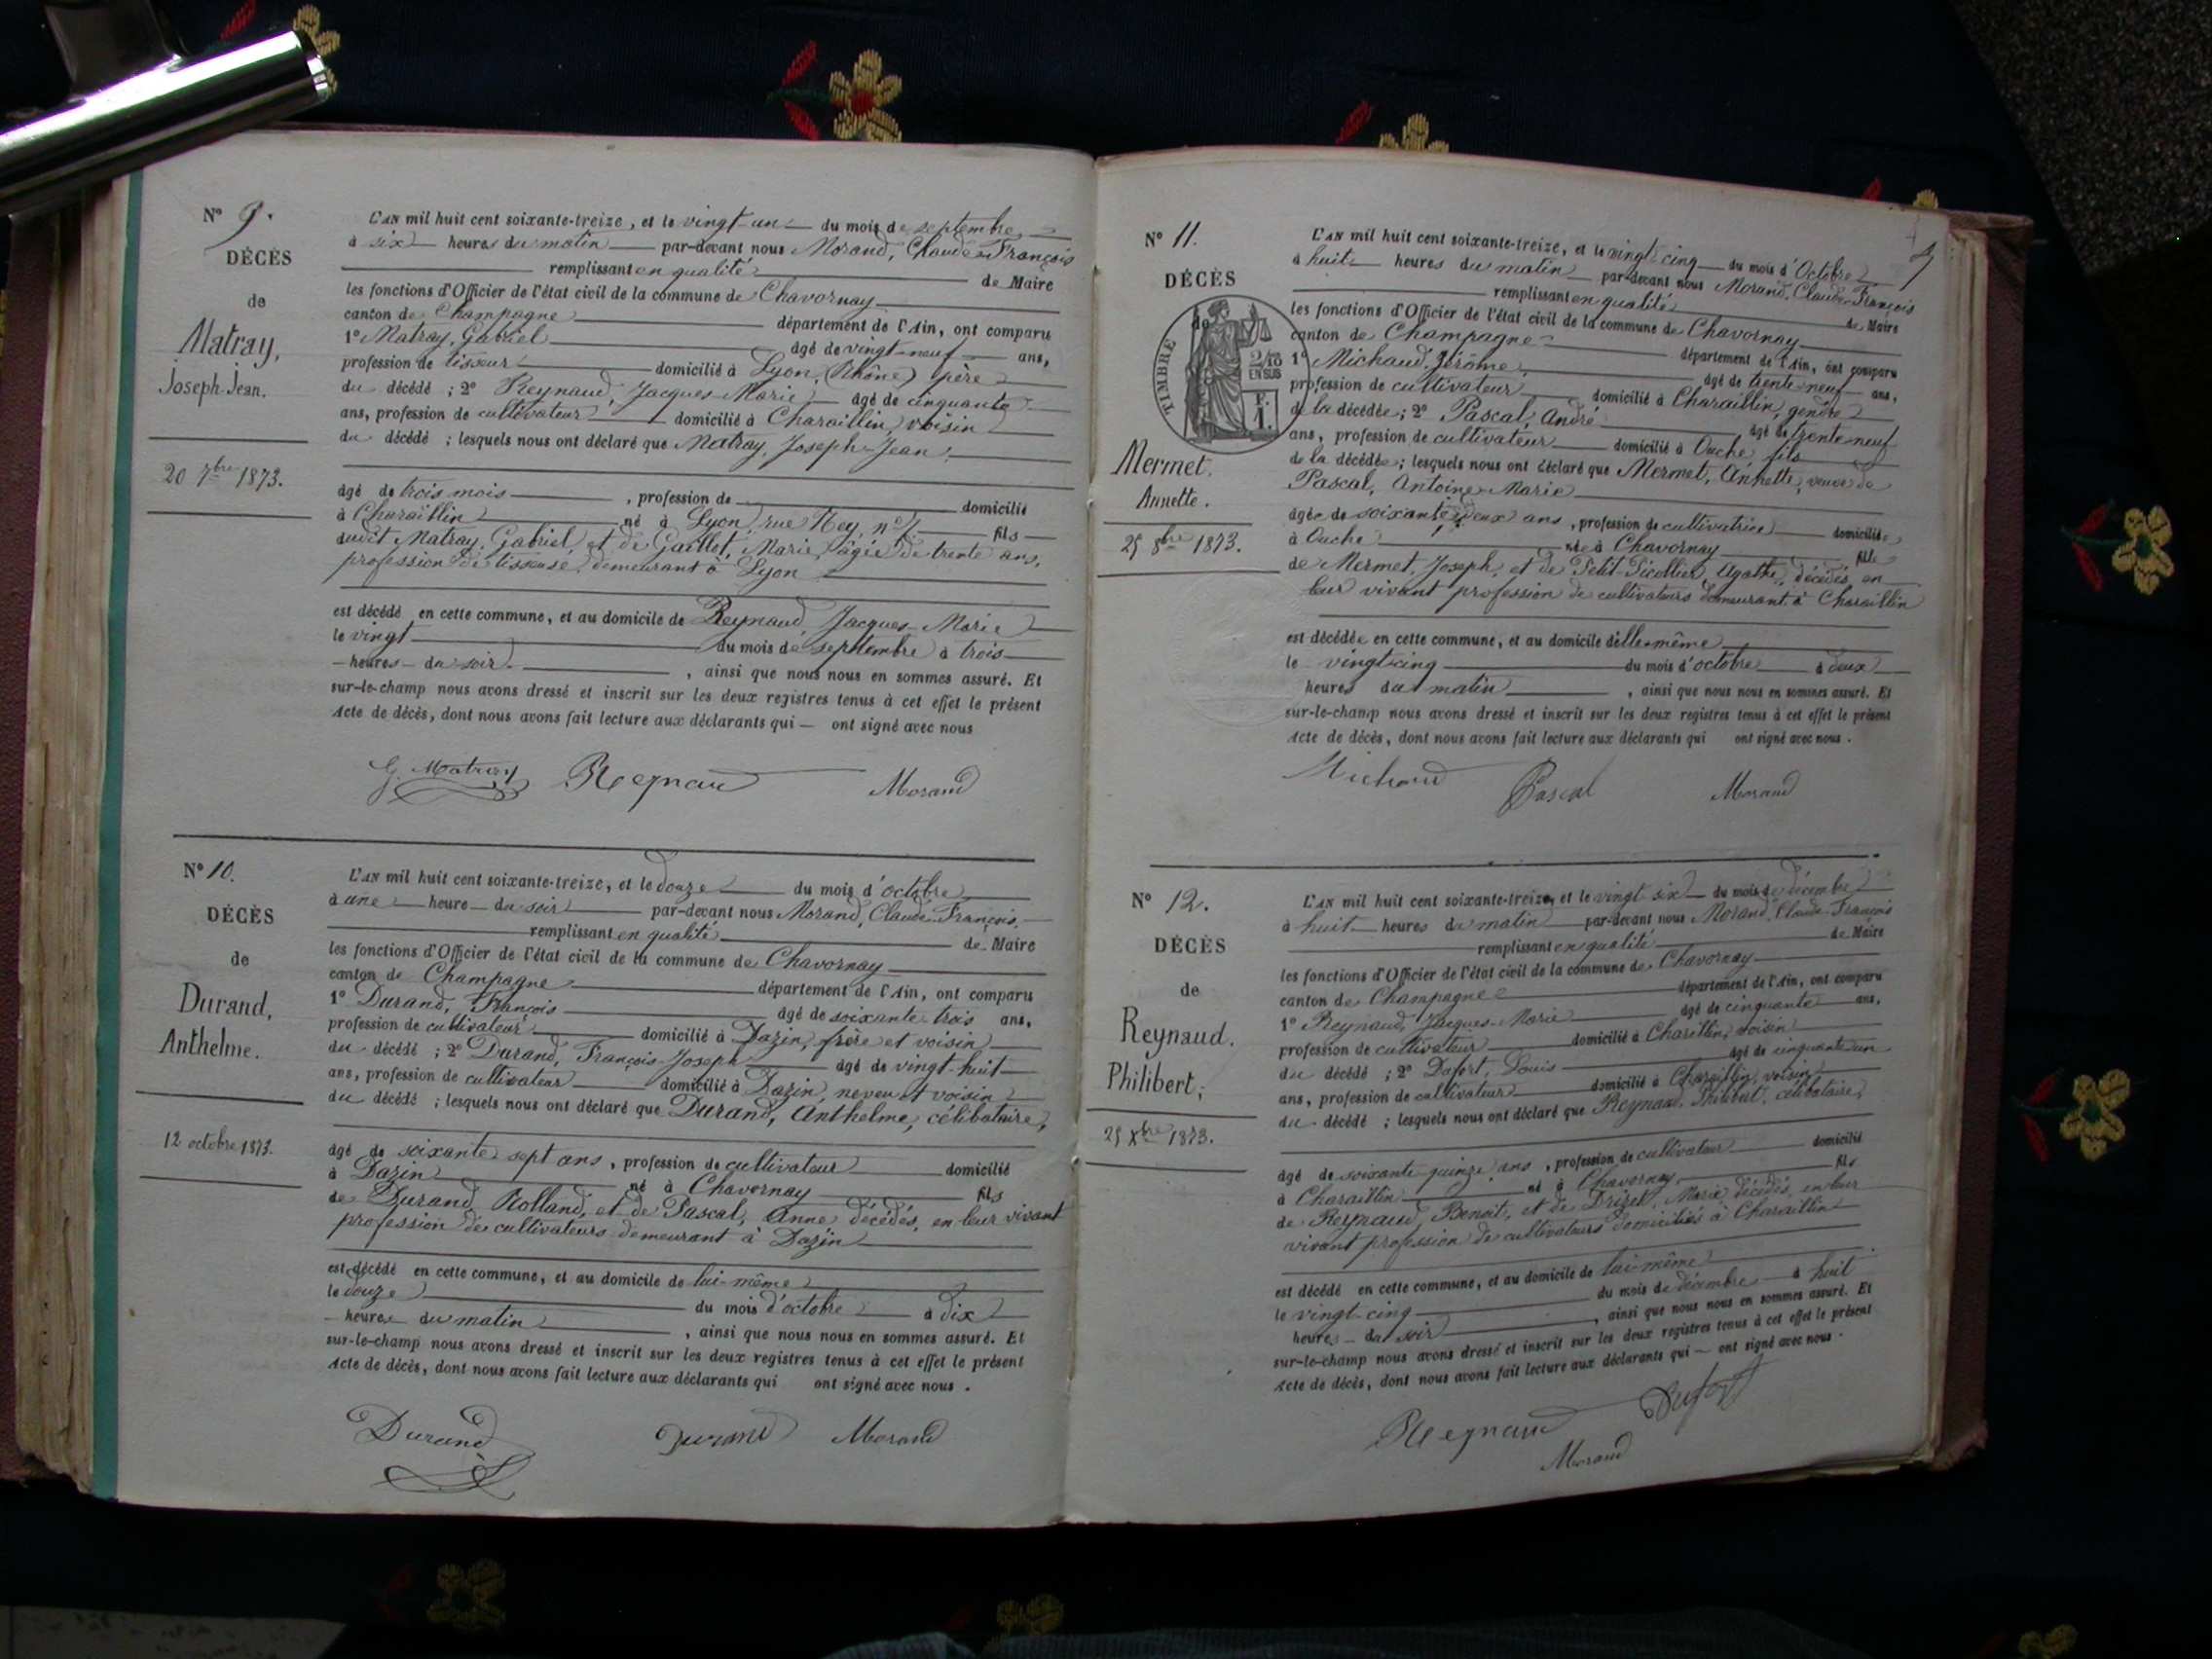 N° 9.
DÉCÈS
de
Matray,
Joseph-Jean.
20 7bre 1873.
L'AN mil huit cent soixante-treize, et le vingt-un du mois de septembre
à six heures du matin par-devant nous Morand, Claude-François
remplissant en qualité de Maire
les fonctions d'Officier de l'état civil de la commune de Chavornay
canton de Champagne département de l'Ain, ont comparu
1° Matray, Gabriel âgé de vingt-neuf ans,
profession de tisseur domicilié à Lyon, (Rhône) père
du décédé ; 2° Reynaud, Jacques-Marie âgé de cinquante
ans, profession de cultivateur domicilié à Charaillin, voisin
du décédé ; lesquels nous ont déclaré que Matray, Joseph-Jean,
âgé de trois mois , profession de domicilié
à Charaillin né à Lyon, rue Ney, n° fils
dudit Matray, Gabriel, et de Gaillot, Marie, âgée de trente ans,
profession de tisseuse, demeurant à Lyon
est décédé en cette commune, et au domicile de Reynaud, Jacques-Marie
le vingt du mois de septembre à trois
heures du soir , ainsi que nous nous en sommes assuré. Et
sur-le-champ nous avons dressé et inscrit sur les deux registres tenus à cet effet le présent
Acte de décès, dont nous avons fait lecture aux déclarants qui — ont signé avec nous
G. Matray Reynaud Morand
N° 10.
DÉCÈS
de
Durand,
Anthelme.
12 octobre 1873.
L'AN mil huit cent soixante-treize, et le douze du mois d'octobre
à une heure du soir par-devant nous Morand, Claude-François,
remplissant en qualité de Maire
les fonctions d'Officier de l'état civil de la commune de Chavornay
canton de Champagne département de l'Ain, ont comparu
1° Durand, François âgé de soixante-trois ans,
profession de cultivateur domicilié à Dazin, frère et voisin
du décédé ; 2° Durand, François-Joseph âgé de vingt-huit
ans, profession de cultivateur domicilié à Dazin, neveu et voisin
du décédé ; lesquels nous ont déclaré que Durand, Anthelme, célibataire,
âgé de soixante-sept ans , profession de cultivateur domicilié
à Dazin né à Chavornay fils
de Durand, Rolland, et de Pascal, Anne décédés, en leur vivant
profession de cultivateurs demeurant à Dazin
est décédé en cette commune, et au domicile de lui-même
le douze du mois d'octobre à dix
heures du matin , ainsi que nous nous en sommes assuré. Et
sur-le-champ nous avons dressé et inscrit sur les deux registres tenus à cet effet le présent
Acte de décès, dont nous avons fait lecture aux déclarants qui ont signé avec nous .
Durand Durand Morand
N° 11.
DÉCÈS
de
TIMBRE
2/10
EN SUS
F.
1.
Mermet.
Annette.
25 8bre 1873.
L'AN mil huit cent soixante-treize, et le vingt-cinq du mois d'Octobre
à huit heures du matin par-devant nous Morand, Claude-François
remplissant en qualité de Maire
les fonctions d'Officier de l'état civil de la commune de Chavornay
canton de Champagne département de l'Ain, ont comparu
1° Michaud, Jérôme, âgé de trente-neuf ans,
profession de cultivateur domicilié à Charaillin, gendre
de la décédée ; 2° Pascal, André âgé de trente-neuf
ans, profession de cultivateur domicilié à Ouche fils
de la décédée ; lesquels nous ont déclaré que Mermet, Annette, veuve de
Pascal, Antoine-Marie
âgée de soixante-deux ans , profession de cultivatrice domiciliée
à Ouche née à Chavornay fille
de Mermet, Joseph, et de Petit-Picollier, Agathe, décédés, en
leur vivant profession de cultivateurs demeurant à Charaillin
est décédée en cette commune, et au domicile d'elle-même
le vingt-cinq du mois d'octobre à deux
heures du matin , ainsi que nous nous en sommes assuré. Et
sur-le-champ nous avons dressé et inscrit sur les deux registres tenus à cet effet le présent
Acte de décès, dont nous avons fait lecture aux déclarants qui ont signé avec nous .
Michaud Pascal Morand
N° 12.
DÉCÈS
de
Reynaud.
Philibert,
25 Xbre 1873.
L'AN mil huit cent soixante-treize, et le vingt-six du mois de décembre
à huit heures du matin par-devant nous Morand, Claude-François
remplissant en qualité de Maire
les fonctions d'Officier de l'état civil de la commune de Chavornay
canton de Champagne département de l'Ain, ont comparu
1° Reynaud, Jacques-Marie âgé de cinquante ans,
profession de cultivateur domicilié à Charillin, voisin
du décédé ; 2° Dufort, Louis âgé de cinquante-un
ans, profession de cultivateur domicilié à Charaillin, voisin
du décédé ; lesquels nous ont déclaré que Reynaud, Philibert, célibataire,
âgé de soixante-quinze ans , profession de cultivateur domicilié
à Charaillin né à Chavornay fils
de Reynaud, Benoit, et de Drizet, Marie décédés, en leur
vivant profession de cultivateurs domiciliés à Charaillin
est décédé en cette commune, et au domicile de lui-même
le vingt-cinq du mois de décembre à huit
heures du soir , ainsi que nous nous en sommes assuré. Et
sur-le-champ nous avons dressé et inscrit sur les deux registres tenus à cet effet le présent
Acte de décès, dont nous avons fait lecture aux déclarants qui — ont signé avec nous .
Reynaud Dufort
Morand